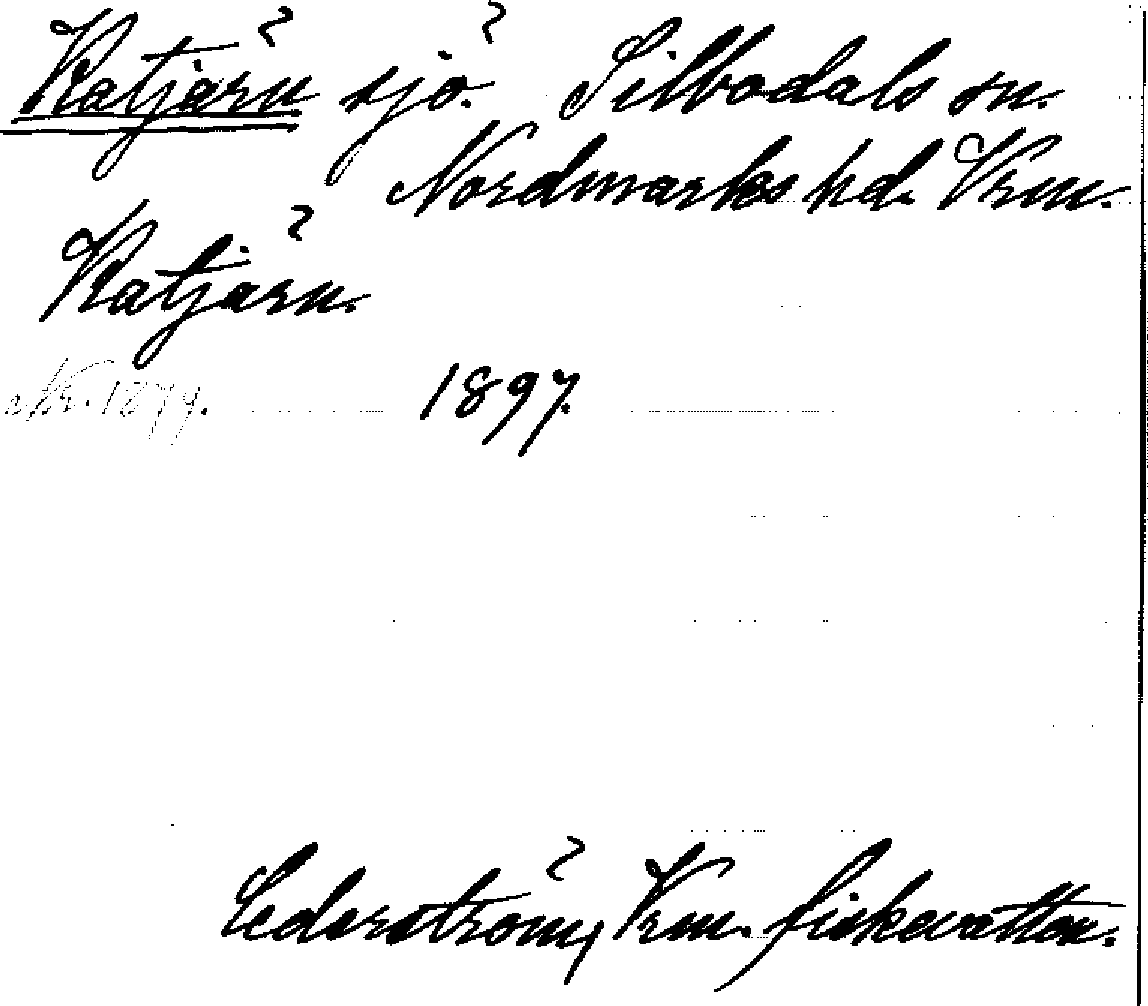 Katjärn sjö. Silbodals sn.
Nordmarks hd. Vrm.
Katjärn.
Nr. 1879. 1897.
Cederström, Vrm. fiskevatten.